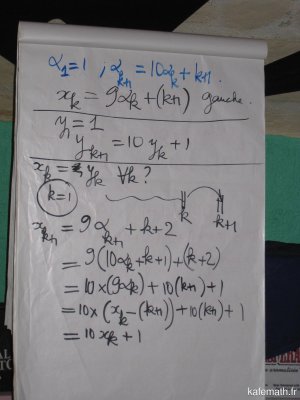 α₁=1 ; α_{k+1} = 10α_k + k+1.
x_k = 9α_k + (k+1) gauche.
y₁ = 1
y_{k+1} = 10 y_k + 1
x_k = y_k ∀k?
k=1
k k+1
x_{k+1} = 9α_{k+1} + k+2
= 9(10α_k + k+1) + (k+2)
= 10×(9α_k) + 10(k+1) + 1
= 10×(x_k − (k+1)) + 10(k+1) + 1
= 10x_k + 1
kafemath.fr